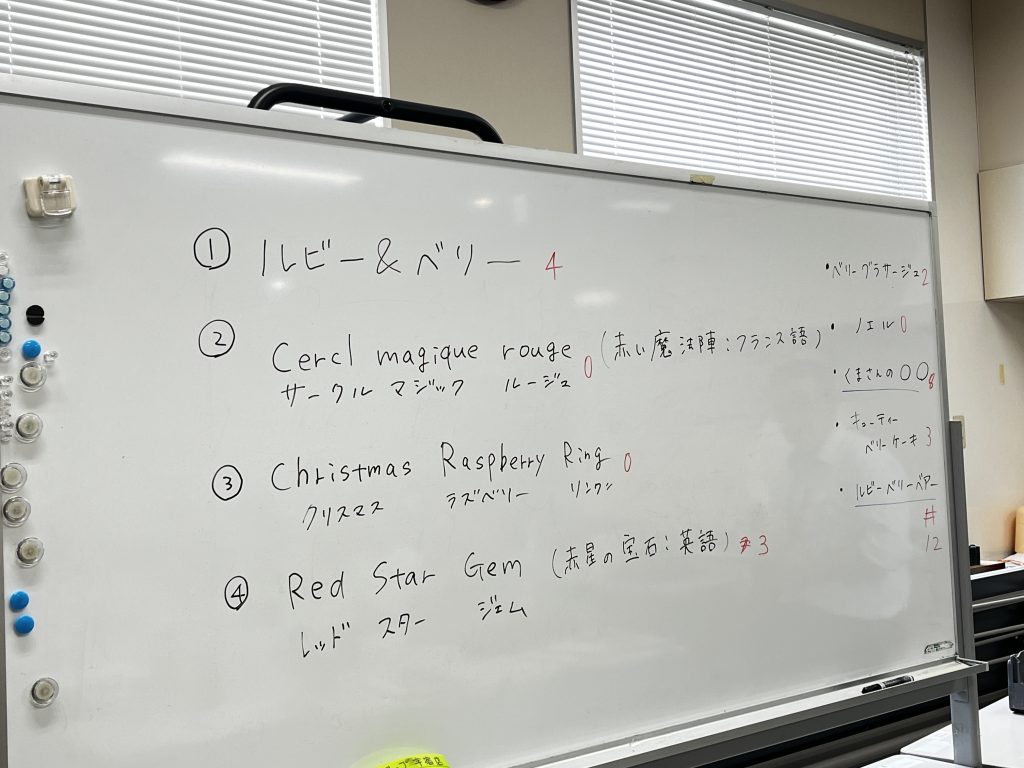 ① ルビー&ベリー 4
② Cercl magique rouge 0 (赤い魔法陣:フランス語)
サークル マジック ルージュ
③ Christmas Raspberry Ring 0
クリスマス ラズベリー リング
④ Red Star Gem (赤星の宝石:英語) 3
レッド スター ジェム
・ベリーグラサージュ 2
・ノエル 0
・くまさんの〇〇 8
・キューティー
ベリーケーキ 3
・ルビーベリーベアー
12